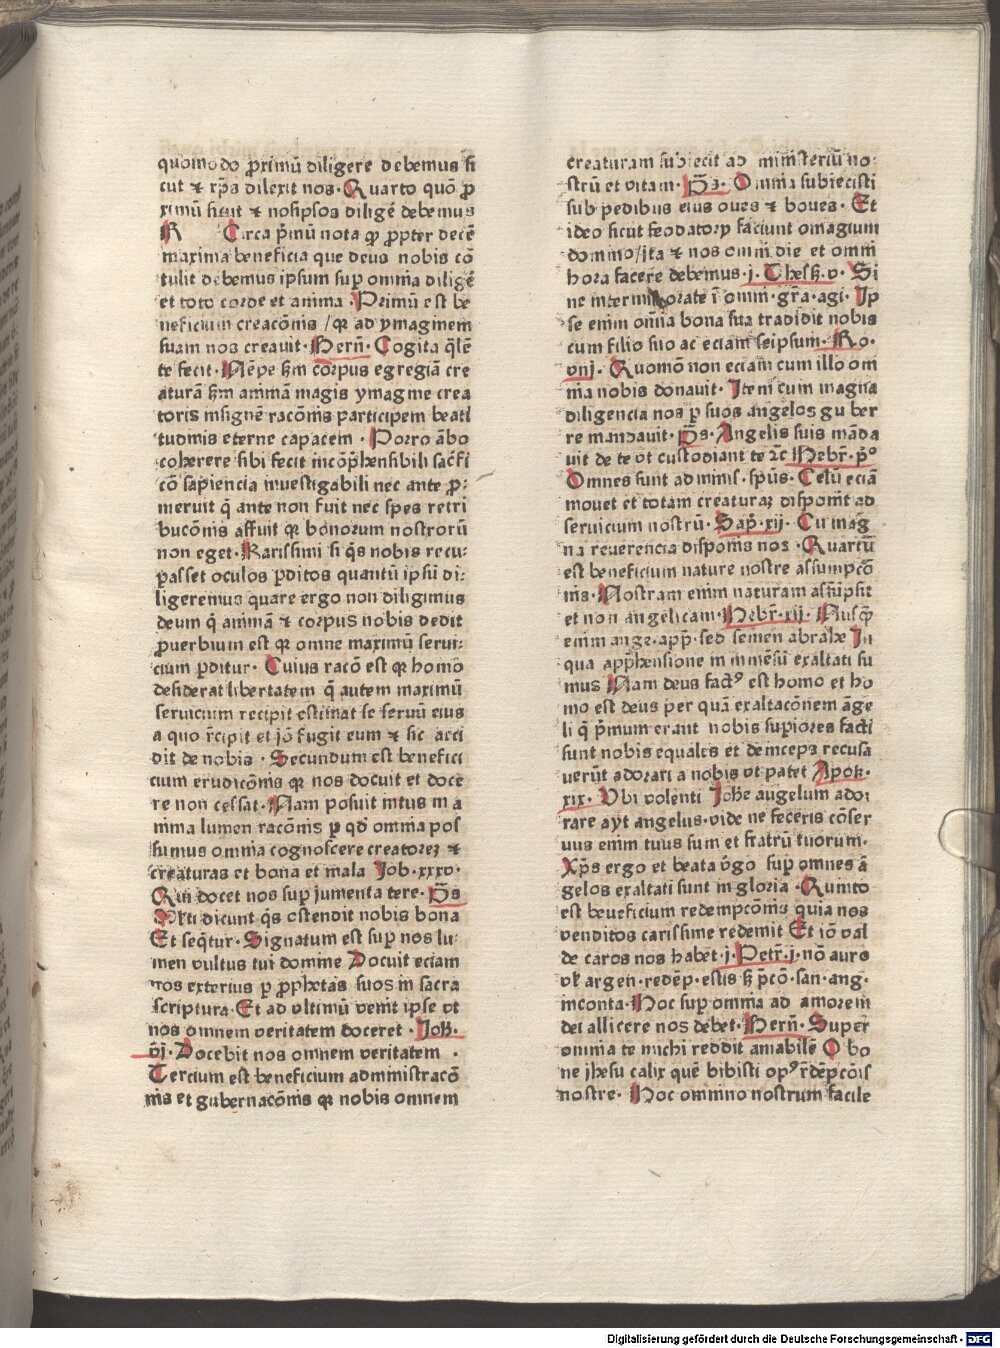 quomodo ꝓximū diligere debemus si
cut ⁊ xp̄s dilexit nos · Quarto quō ꝓ
ximū sicut ⁊ nosipsos diligē debemus
R Circa p̄mū nota ꝙ ꝓpter decē
maxima beneficia que deus nobis cō
tulit debemus ipsum suꝑ omnia diligē
et toto corde et anima · Primū est be
neficium creacōnis / qꝛ ad ymaginem
suam nos creauit · Bern̄ · Cogita q̄lē
te fecit · Nēpe ẜm corpus egregiā cre
aturā ẜm animā magis ymagine crea
toris insignē racōnis participem beati
tudinis eterne capacem · Porro ābo
coherere sibi fecit incōp̄hensibili sac̄fi
cō sapiencia inuestigabili nec ante ꝓ:
meruit q̄ ante non fuit nec spes retri
bucōnis affuit qꝛ bonorum nostrorū
non eget · Karissimi si q̄s nobis recu:
passet oculos ꝑditos quantū ipsū di:
ligeremus quare ergo non diligimus
deum q̄ animā ⁊ corpus nobis dedit
ꝓuerbium est qꝛ omne maximū serui:
cium ꝑditur · Cuius racō est qꝛ homo
desiderat libertatem q̄ autem maximū
seruicium recipit estimat se seruū eius
a quo r̄cipit et iō fugit eum ⁊ sic acci
dit de nobis · Secundum est benefici
cium erudicōnis qꝛ nos docuit et doce
re non cessat · Nam posuit intus in a
nima lumen racōnis ꝑ qd̄ omnia pos
sumus omnia cognoscere creatorez ⁊
creaturas et bona et mala Job · xxxv ·
Qui docet nos suꝑ jumenta tere · Ps̄
Mlti dicunt q̄s ostendit nobis bona
Et seq̄tur · Signatum est suꝑ nos lu:
men vultus tui domine Docuit eciam
nos exterius ꝑ ꝓphetas suos in sacra
scriptura · Et ad vltimū venit ipse vt
nos omnem veritatem doceret · Joh̄ ·
vj · Docebit nos omnem veritatem ·
Tercium est beneficium administracō
nis et gubernacōnis qꝛ nobis omnem
creaturam subiecit ad ministeriū no:
strū et vitam · Ps̄ · Omnia subiecisti
sub pedibus eius oues ⁊ boues · Et
ideo sicut feodatorꝝ faciunt omagium
domino / ita ⁊ nos omni die et omni
hora facere debemus · j · Thesß · v · Si
ne intermissōe orate ī omni · gr̄a · agi · Ip
se enim omīa bona sua tradidit nobis
cum filio suo ac eciam seipsum · Ro ·
viij · Quomō non eciam cum illo om
nia nobis donauit · Item cum magna
diligencia nos ꝑ suos angelos gu ber
re mandauit · Ps̄ · Angelis suis māda
uit de te vt custodiant te ⁊c̄ Hebr̄ · p̄º
Omnes sunt adminis · sp̄us · Celū eciā
mouet et totam creaturaꝫ disponit ad
seruicium nostrū · Sap̄ · xij · Cu mag
na reuerencia disponis nos · Quartū
est beneficium nature nostre assumpcō
nis · Nostram enim naturam assūpsit
et non angelicam · Hebr̄ · xij · Nusꝙ̄
enim ange · app̄ · sed semen abrahe In
qua app̄hensione in inmēsū exaltati su
mus Nam deus factꝰ est homo et ho
mo est deus per quā exaltacōnem āge
li q̄ p̄mum erant nobis suꝑiores facti
sunt nobis equales et deinceps recusa
uerūt adorari a nobis vt patet Apok ·
xix · Ubi volenti Johē angelum ador
rare ayt angelus · vide ne feceris cōser
uus enim tuus sum et fratrū tuorum ·
Xp̄s ergo et beata v̄go suꝑ omnes ā
gelos exaltati sunt in gloria · Quinto
est beneficium redempcōnis quia nos
venditos carissime redemit Et iō val
de caros nos habet · j · Petr̄ · j · nō auro
vl̄ argen · redēp · estis ẜ p̄cō · san · ang ·
inconta · Hoc suꝑ omnia ad amorem
dei allicere nos debet · Bern̄ · Super
omnia te michi reddit amabilē O bo
ne jhesu calix quē bibisti opꝰ r̄dēpcōis
nostre · Hoc omnino nostrum facile
Digitalisierung gefördert durch die Deutsche Forschungsgemeinschaft - DFG